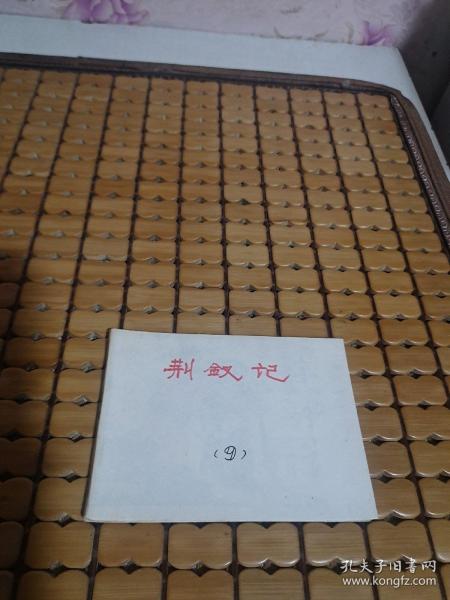 荆釵记
(9)
孔夫子旧书网
www.kongfz.com